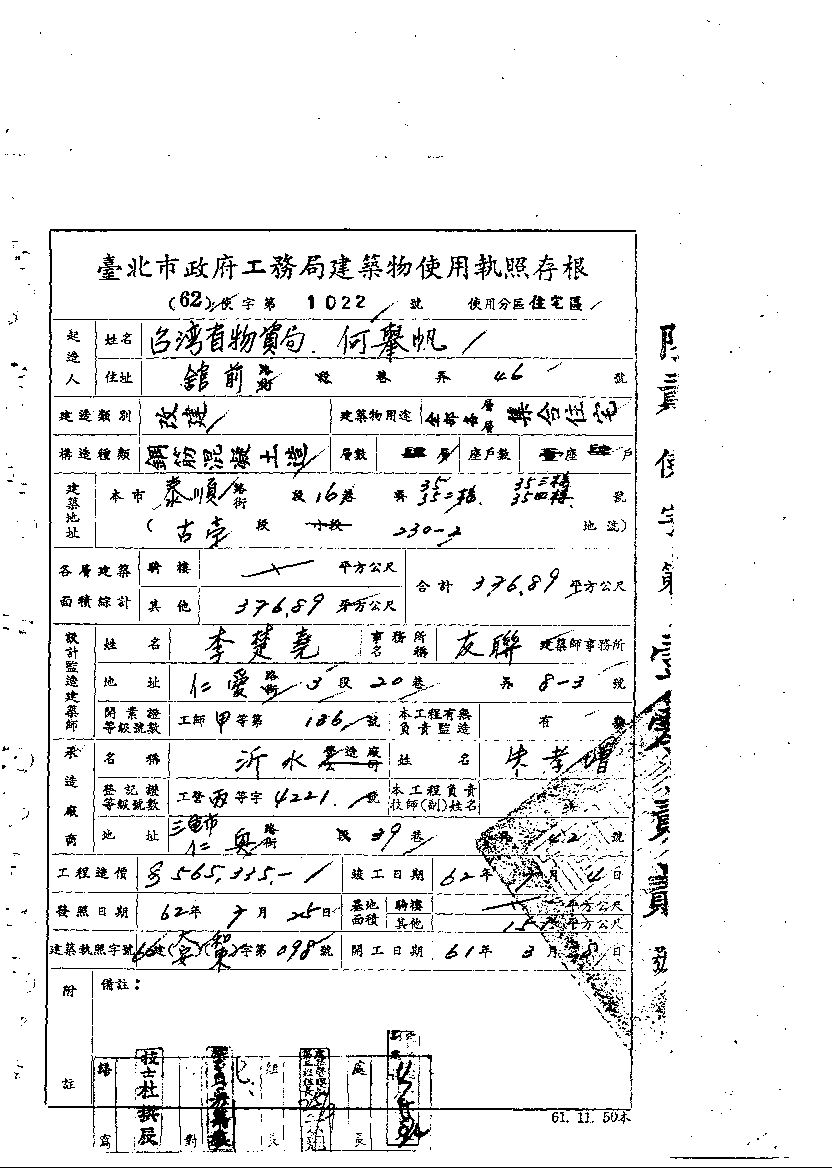 臺北市政府工務局建築物使用執照存根
(62)使字第 1022 號 使用分區 住宅區
起造人 姓名 台湾省物資局 何舉帆
住址 舘前 路街 段 巷 弄 46 號
建造類別 改建 建築物用途 全部各層層 集合住宅
構造種類 鋼筋混凝土造 層數 肆層 座戶數 壹座 肆戶
建築地址 本市 泰順 路街 段 16 巷 弄 35 35二樓 35三樓 35四樓 號
(古亭 段 小段 230-2 地號)
各層建築面積綜計 騎樓 平方公尺 合計 376.89 平方公尺
其他 376.89 平方公尺
設計監造建築師 姓名 李楚堯 事務所名稱 友聯 建築師事務所
地址 仁愛 路街 3 段 20 巷 弄 8-3 號
開業證等級號數 工師 甲 等第 186 號 本工程有無負責監造 有 無
承造廠商 名稱 沂水 營造廠公司 姓名 朱孝增
登記證等級號數 工營 丙 等字 4221 號 本工程負責技師(副)姓名
地址 三重市 仁興 路街 段 39 巷 弄 42 號
工程造價 565,335.- 竣工日期 62年 7月 4日
發照日期 62年 7月 25日 基地面積 騎樓 平方公尺
其他 平方公尺
建築執照字號 建 字第 098 號 開工日期 61年 3月 8日
附註 備註：
繕寫 技士杜 對 組長 處長
61. 11. 50本